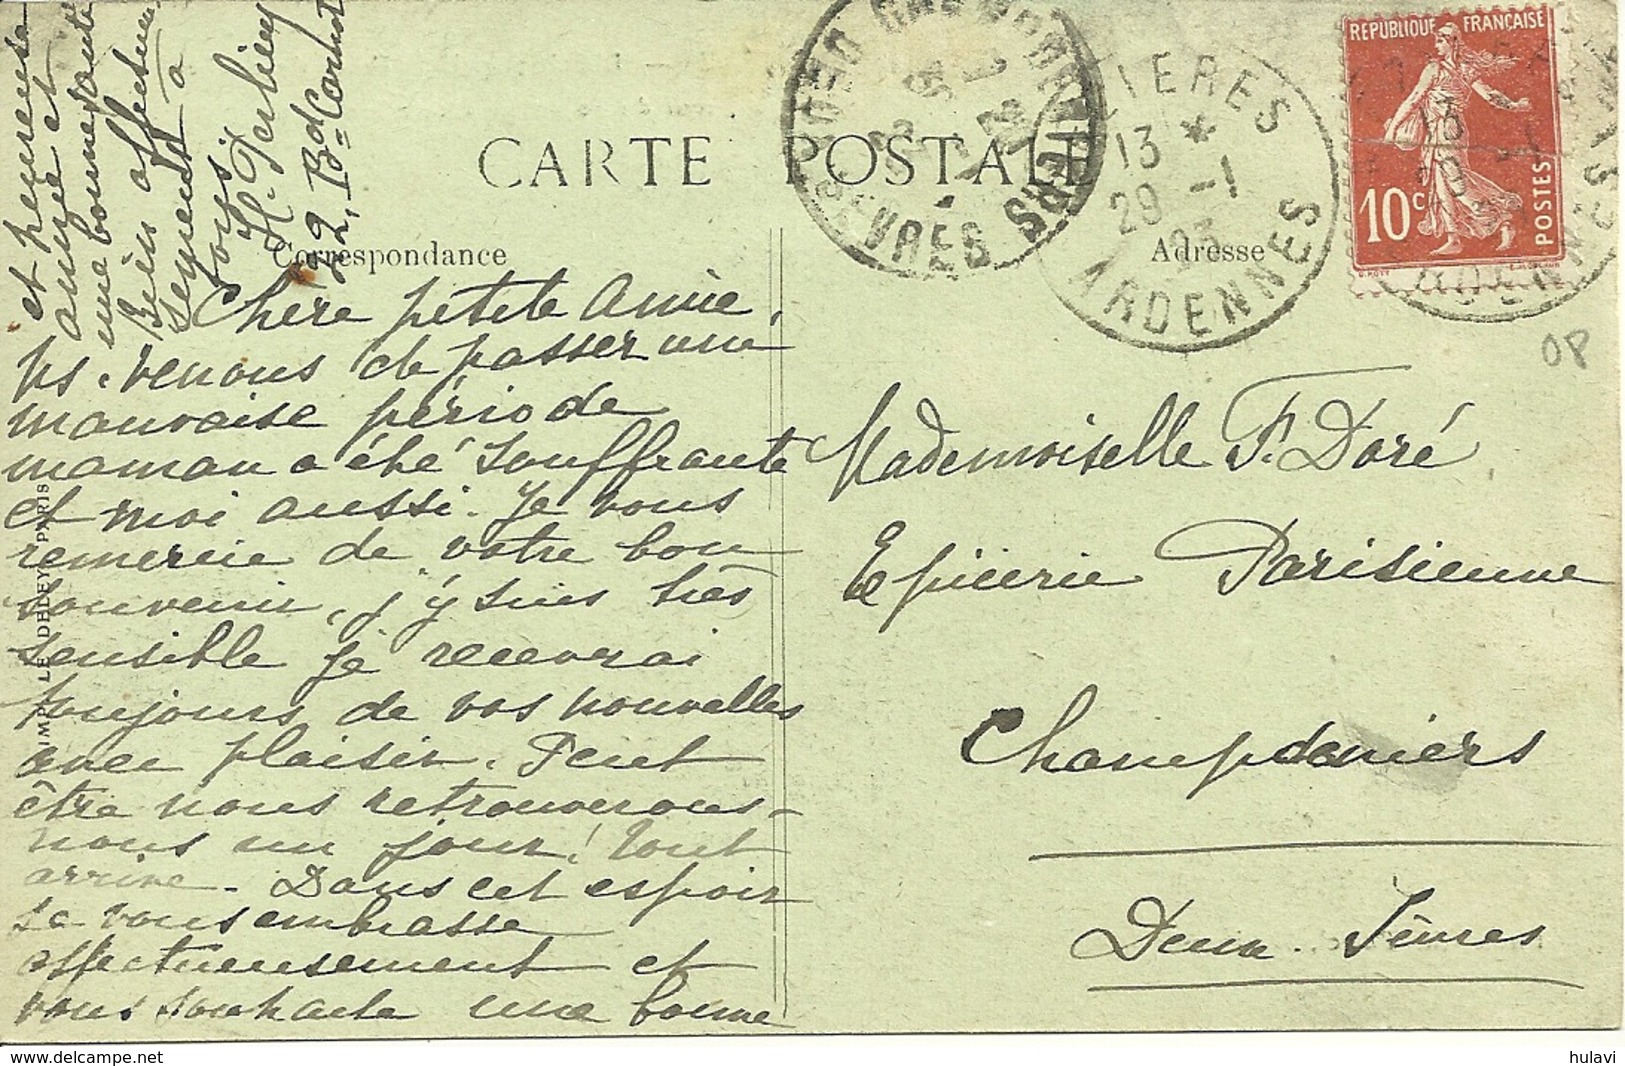 CARTE POSTALE
Correspondance
Adresse
REPUBLIQUE FRANÇAISE
10c
POSTES
13 *
29 -1
ARDENNES
SEVRES
OP
Chère petite Amie,
ns. venons de passer une
mauvaise période
maman a été souffrante
et moi aussi. Je vous
remercie de votre bon
souvenir, j'y suis très
sensible je recevrai
toujours de vos nouvelles
avec plaisir. Peut
être nous retrouverons-
nous un jour! tout
arrive. Dans cet espoir
je vous embrasse
affectueusement et
vous souhaite une bonne
et heureuse
année et
une bonne santé
Bien affectueu
sement à
vous.
2, Bd
Mademoiselle F. Doré
Epicerie Parisienne
Champdeniers
Deux-Sèvres
IMP. LE DELEY PARIS
hulavi